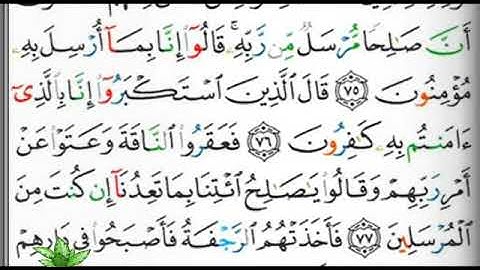 أَنَّ صَٰلِحًا مُّرْسَلٌ مِّن رَّبِّهِۦ ۚ قَالُوٓا۟ إِنَّا بِمَآ أُرْسِلَ بِهِۦ
مُؤْمِنُونَ ٧٥ قَالَ ٱلَّذِينَ ٱسْتَكْبَرُوٓا۟ إِنَّا بِٱلَّذِىٓ
ءَامَنتُم بِهِۦ كَٰفِرُونَ ٧٦ فَعَقَرُوا۟ ٱلنَّاقَةَ وَعَتَوْا۟ عَنْ
أَمْرِ رَبِّهِمْ وَقَالُوا۟ يَٰصَٰلِحُ ٱئْتِنَا بِمَا تَعِدُنَآ إِن كُنتَ مِنَ
ٱلْمُرْسَلِينَ ٧٧ فَأَخَذَتْهُمُ ٱلرَّجْفَةُ فَأَصْبَحُوا۟ فِى دَارِهِمْ